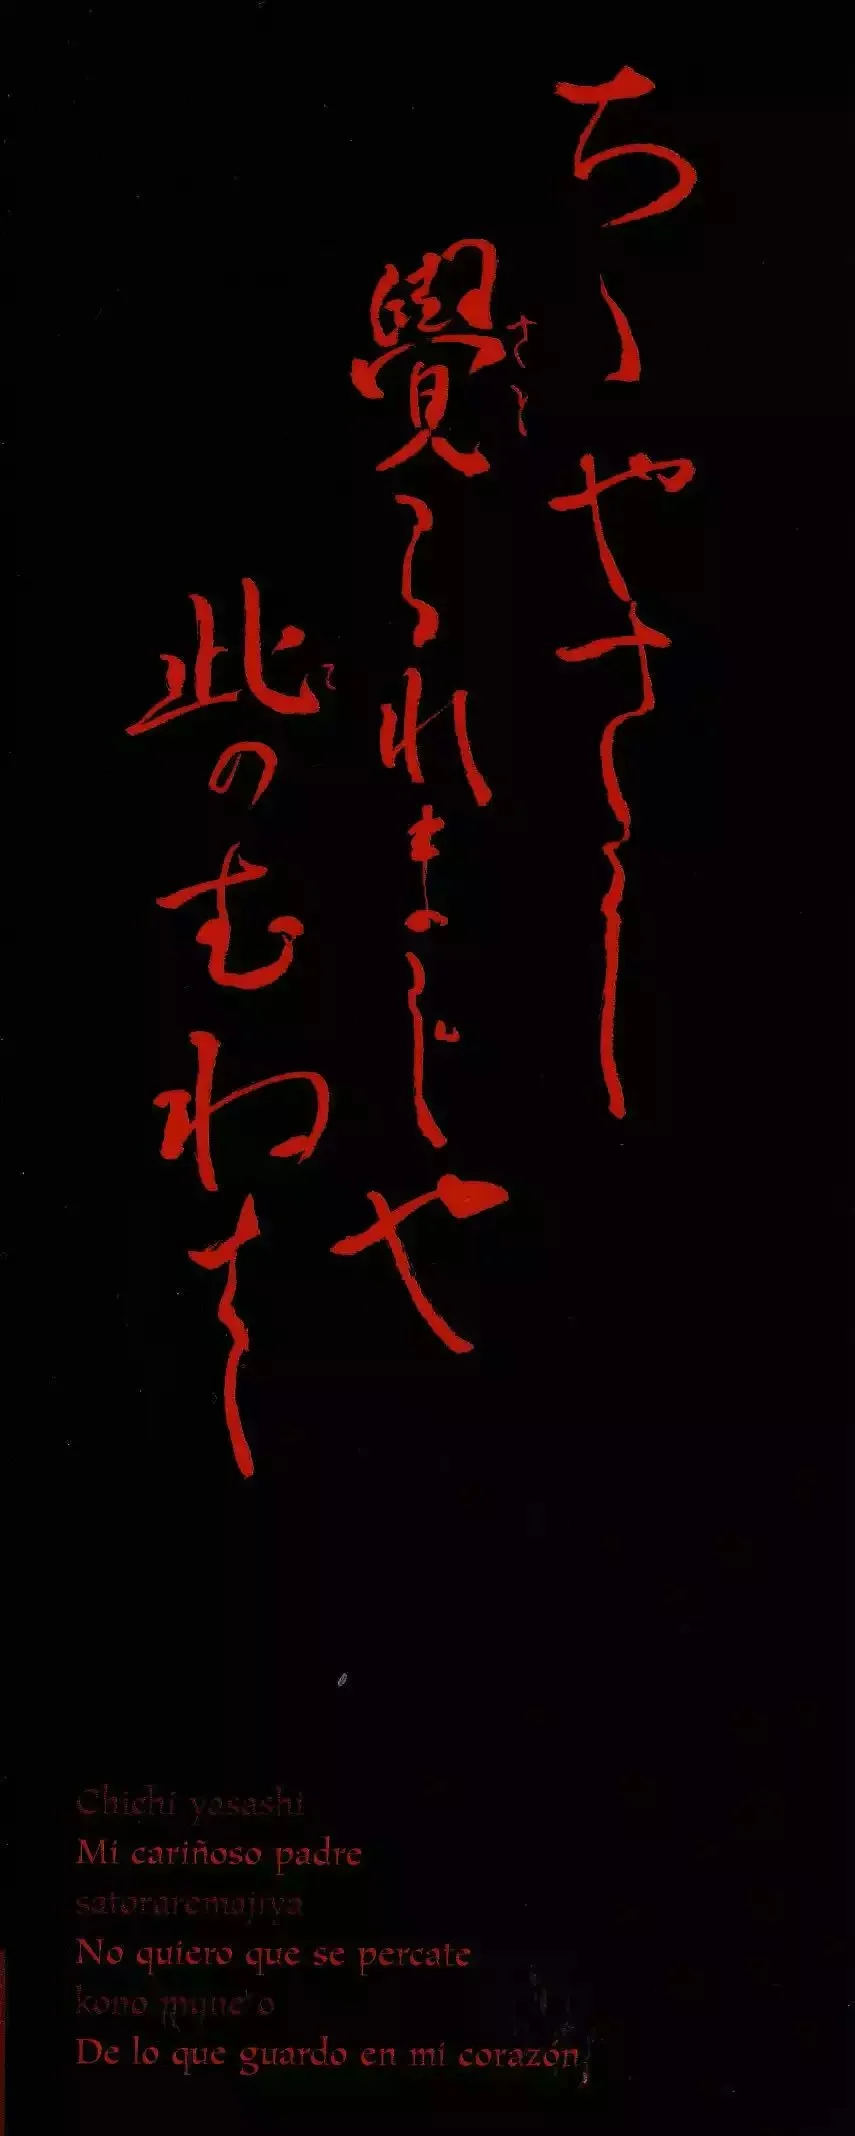 ちゝやさし
覺られまじや
さと
此のむねを
こ
Chichi yasashi
Mi cariñoso padre
satoraremajiya
No quiero que se percate
kono mune o
De lo que guardo en mi corazón